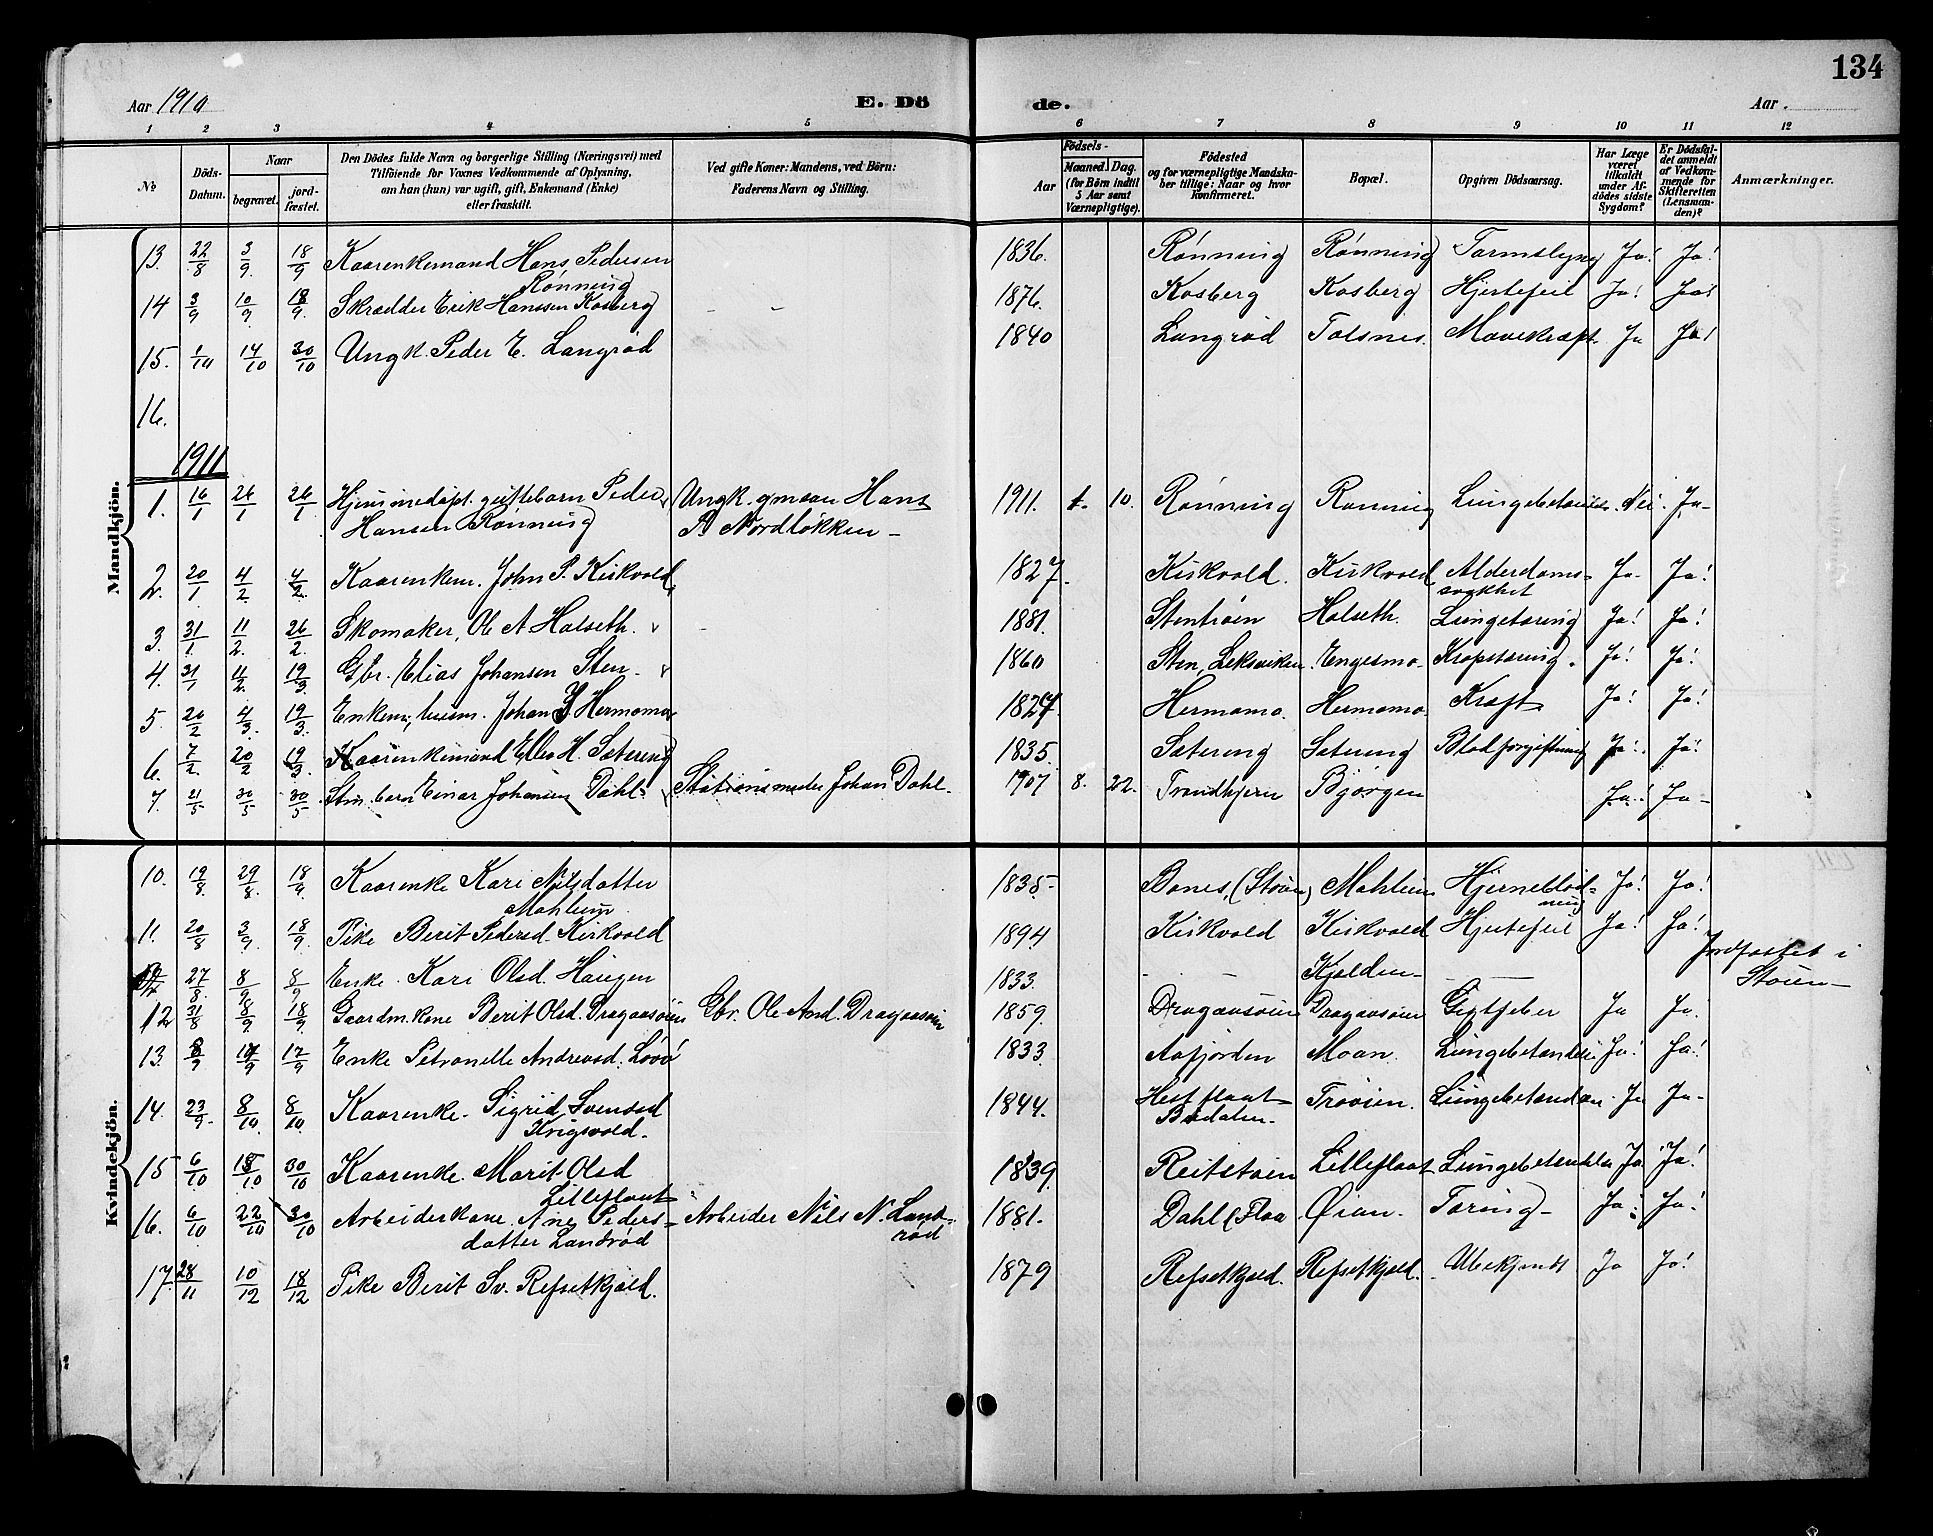 134
Aar 1910 E. Dö de. Aar
1 2 3 4 5 6 7 8 9 10 11 12
No
Döds-Datum.
Naar
begravet.
jord-fæstet.
Den Dödes fulde Navn og borgerlige Stilling (Næringsvei) med
Tilföiende for Voxnes Vedkommende af Oplysning,
om han (hun) var ugift, gift, Enkemand (Enke)
eller fraskilt.
Ved gifte Koner: Mandens, ved Börn:
Faderens Navn og Stilling.
Födsels-
Aar
Maaned. Dag.
(for Börn indtil
5 Aar samt
Værnepligtige).
Födested
og for værnepligtige Mandska-
ber tillige: Naar og hvor
konfirmeret.
Bopæl.
Opgiven Dödsaarsag.
Har Læge
været
tilkaldt
under Af-
dödes sidste
Sygdom?
Er Dödsfal-
det anmeldt
af Vedkom-
mende for
Skifteretten
(Lensman-
den)?
Anmærkninger.
Mandkjön.
13. 22/8 3/9. 18/9 Kaarenkemand Hans Pedersen Rønning 1836. Rønning Rønning Tarmslyng Ja! Ja!
14 3/9 10/9 18/9. Skrædder Erik Hanssen Kosberg - - 1876. Kosberg Kosberg Hjertefeil Ja! Ja!
15. 1/10 14/10 30/10 Ungk. Peder E. Langrød 1840 Langrød Folsnes. Mavekræft. Ja Ja!
16.
1911
1. 16/1 26/1 26/1 Hjemmedøpt. guttebarn Peder Hansen Rønning Ungk. gmsøn Hans P. Nordløkken - 1911. 1. 10. Rønning Rønning Lungebetændelse. Nei. Ja-
2. 20/1 4/2 4/2. Kaarenkem. John P. Kirkvold 1827. Kirkvold. Kirkvold Alderdoms-svakhet Ja- Ja!
3. 31/1. 11/2. 26/2. Skomaker, Ole A Halseth. - 1881. Stentrøen Halseth. Lungetæring Ja! Ja!
4. 31/1 11/2. 19/3 Gbr. Elias Johansen Sten. 1860 Sten, Leksviken. Engesmo. Kræfttæring. Ja! Ja!
5. 20/2 4/3. 19/3. Enkem., husm. Johan J Hermomo 1827. Hermomo. Hermomo. Kræft Ja! Ja!
6. 7/2. 20/2 19/3. Kaarenkemand H. Sætering 1835. Sætering Sætering Blodforgiftning Ja! Ja!
7. 21/5 30/5 30/5 Stm. barn Einar Johansen Dahl. Stationsmester Johan Dahl. 1907 8. 22. Trondhjem Bjørgen Ja! Ja-
Kvindekjön.
10. 19/8. 29/8. 18/9 Kaarenke Kari Nilsdatter Mohlum 1835. Bones, (Støren) Mohlum Hjerneblød-ning Ja! Ja!
11. 20/8 3/9. 18/9. Pike Berit Pedersd. Kirkvold 1894 Kirkvold Kirkvold Hjertefeil Ja! Ja!
27/8. 8/9 8/9 Enke. Kari Olsd. Haugen 1833. - - Kjelden- - - Jordfæstet i Støren-
12 31/8 8/9. 18/9 Gaardm. kone Berit Olsd. Dragaasøien Gbr. Ole And. Dragaasøien 1859. Dragaasøien Dragaasøien Gigtfeber Ja Ja.
13. 8/9 17/9 17/9 Enke Petronelle Andreasd. Løvø 1833. Aafjorden Moan. Lungebetændelse Ja! Ja!
14. 23/9. 8/10. 8/10. Kaarenke. Sigrid Svensd Krigsvold. 1844. Hestflaat Budalen. Trøøien. Lungebetændelse. Ja Ja-
15 6/10 15/10 30/10 Kaarenke. Marit Olsd Lilleflaat 1839. Reitstøen Lilleflaat Lungebetændelse Ja Ja!
16. 6/10 22/10 30/10 Arbeiderkone. Ane Peders-datter Landrød Arbeider Nils N. Land-rød 1881. Dahl (Flaa Øian. Tæring- Ja! Ja!
17. 28/11 10/12 18/12 Pike Berit Sv. Refsetkjøld. 1879 Refsetkjøld. Refsetkjøld. Ubekjendt Ja Ja!